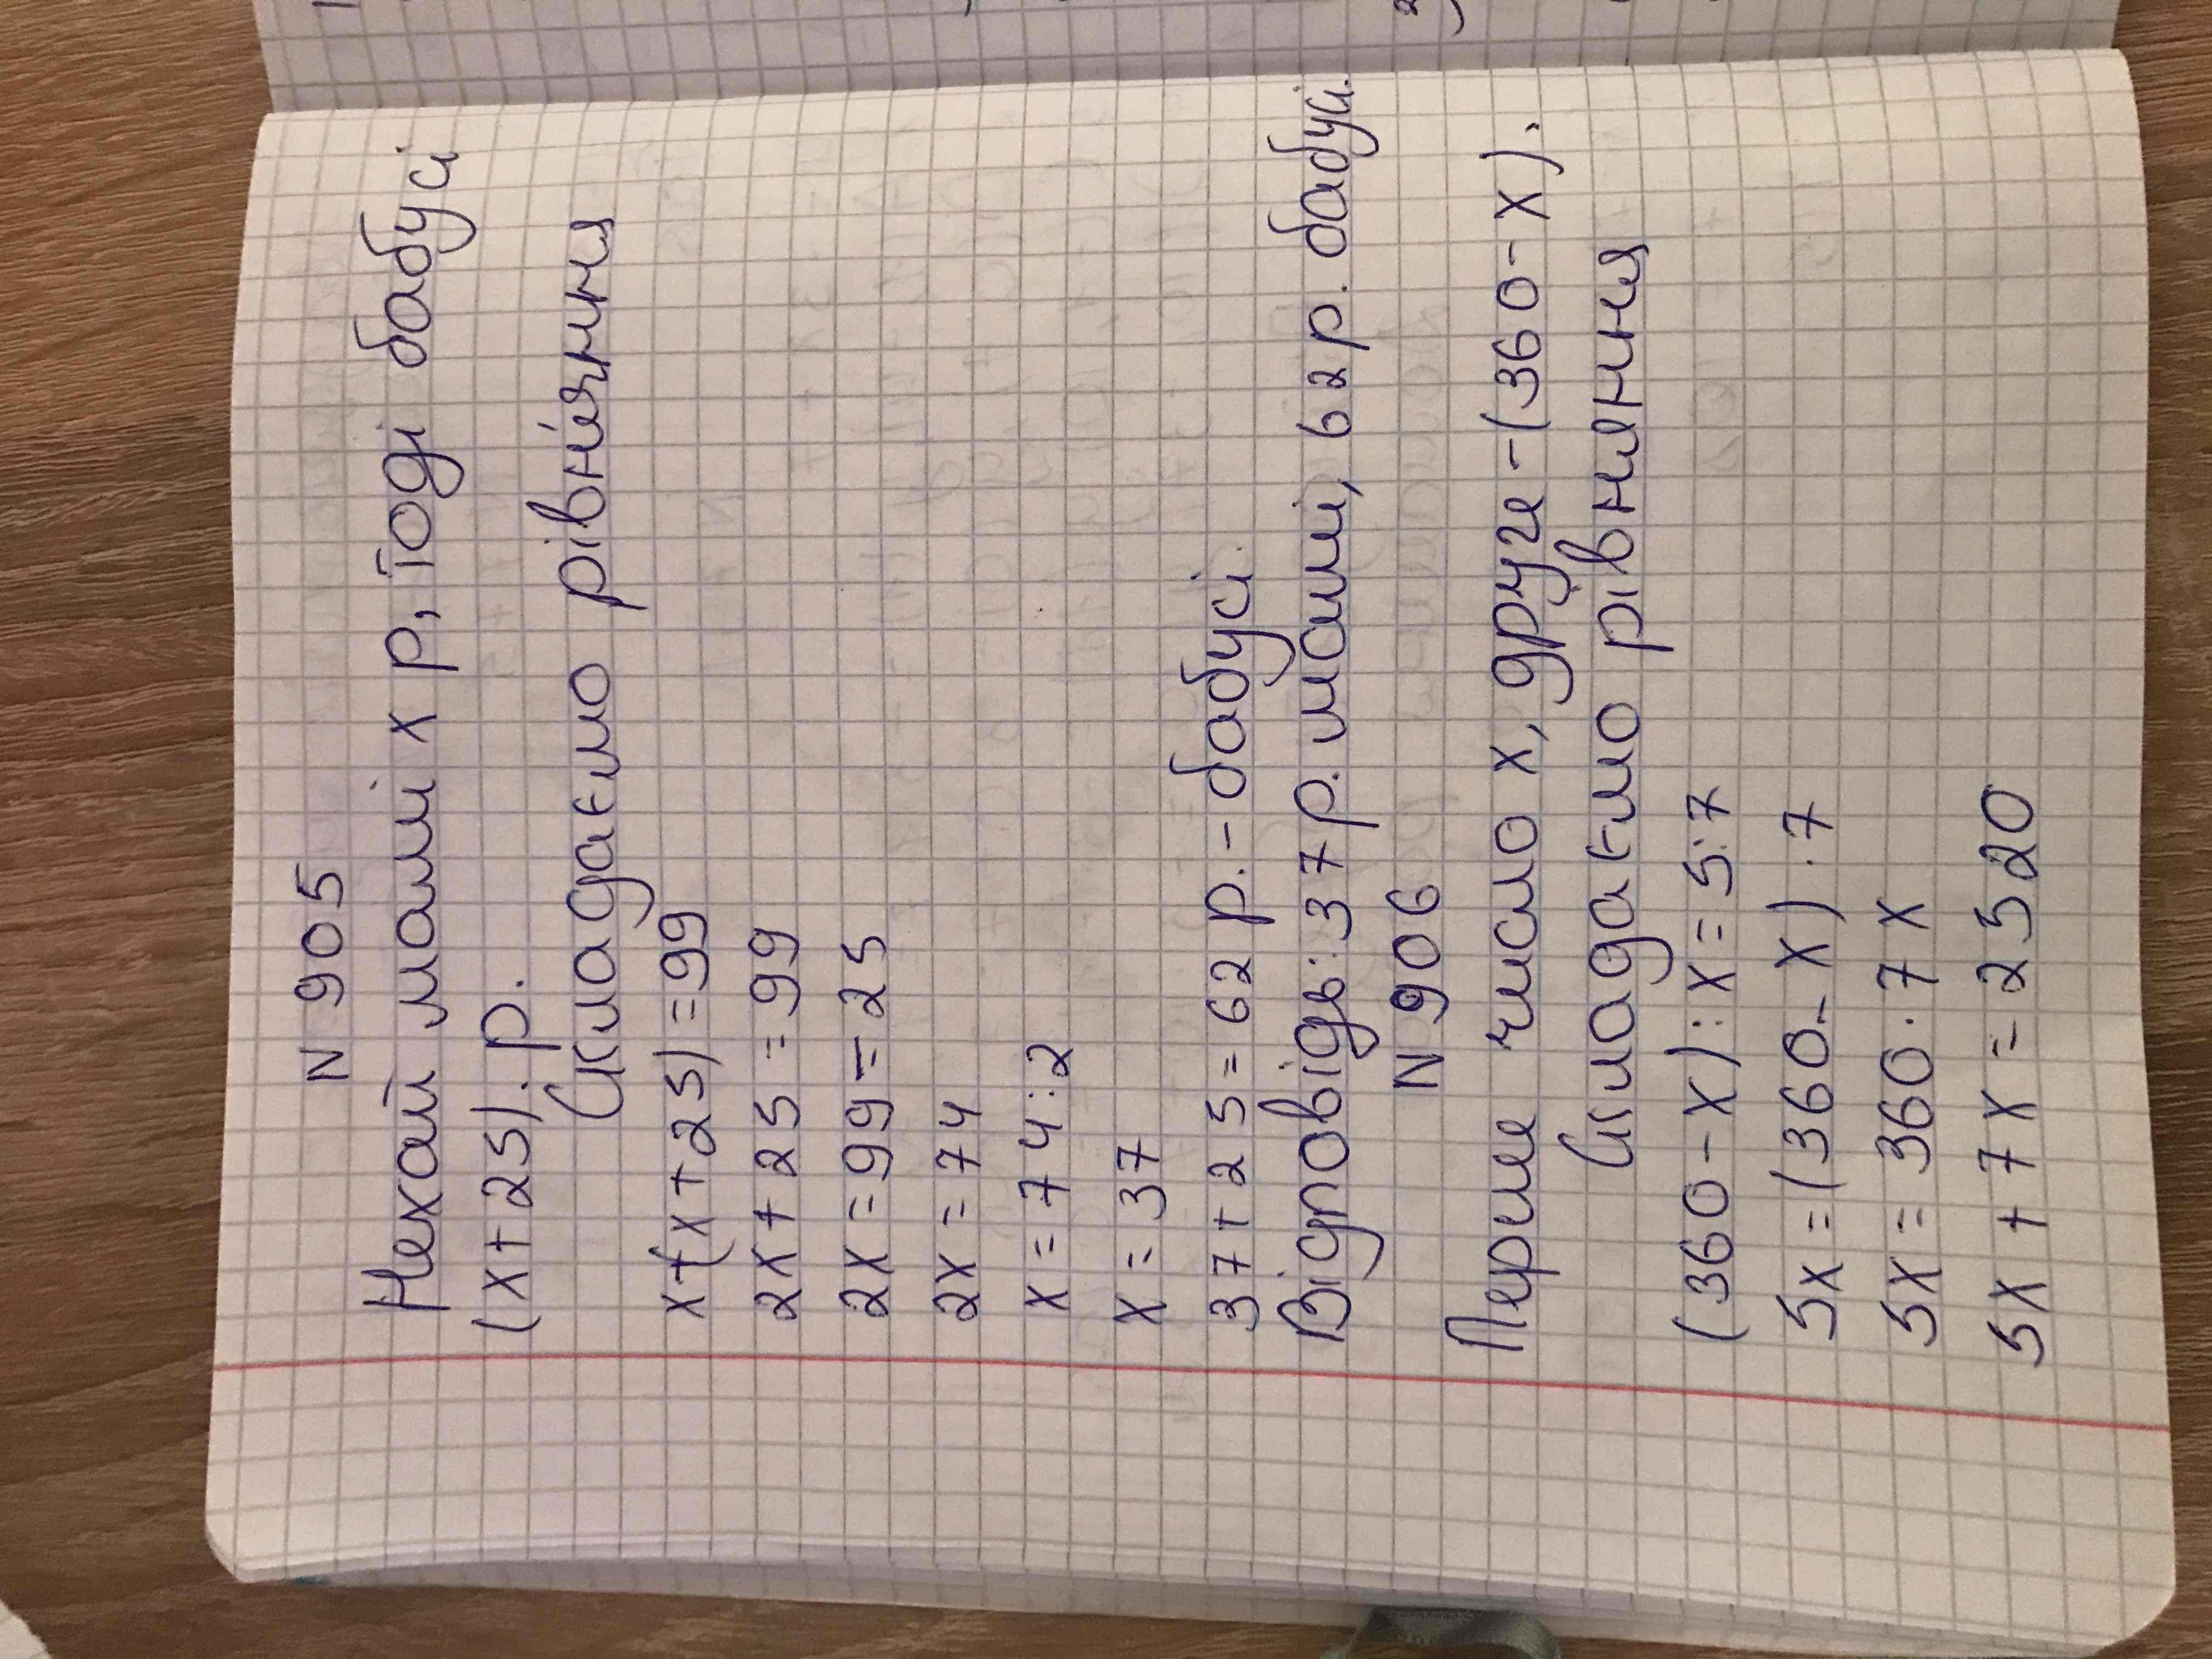 N 905
Нехай мамі х р, тоді бабусі
(х+25).р.
Складаємо рівняння
х+(х+25)=99
2х+25=99
2х=99-25
2х=74
х=74:2
х=37
37+25=62 р.- бабусі.
Відповідь: 37р. мамі, 62р. бабусі.
N 906
Перше число х, друге -(360-х).
Складаємо рівняння
(360-х):х=5:7
5х=(360-х).7
5х=360.7х
5х+7х=2520